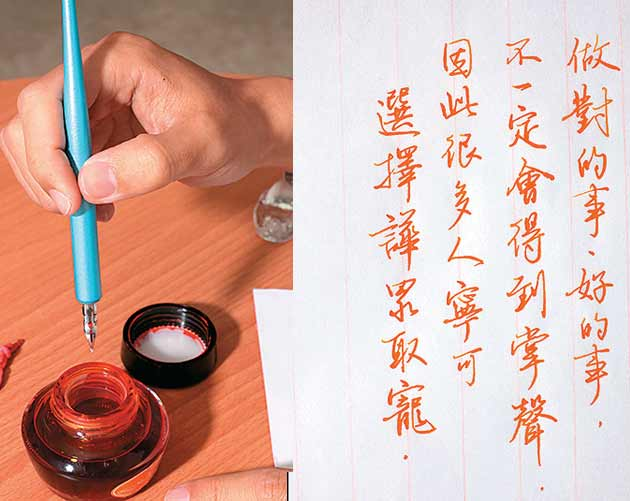 做對的事、好的事，
不一定會得到掌聲．
因此很多人寧可
選擇譁眾取寵．